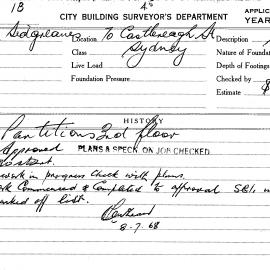 1B 4°
CITY BUILDING SURVEYOR'S DEPARTMENT
APPLIC
YEAR
Sidgreaves Location 70 Castlereagh St Description
Class Sydney Nature of Foundation
Live Load Depth of Footings
Foundation Pressure Checked by
$
HISTORY
Partitions 2nd floor
Approved PLANS & SPECK ON JOB CHECKED
work in progress check with plans.
Commenced & Completed to approval S&I
marked off list.
8-7.68